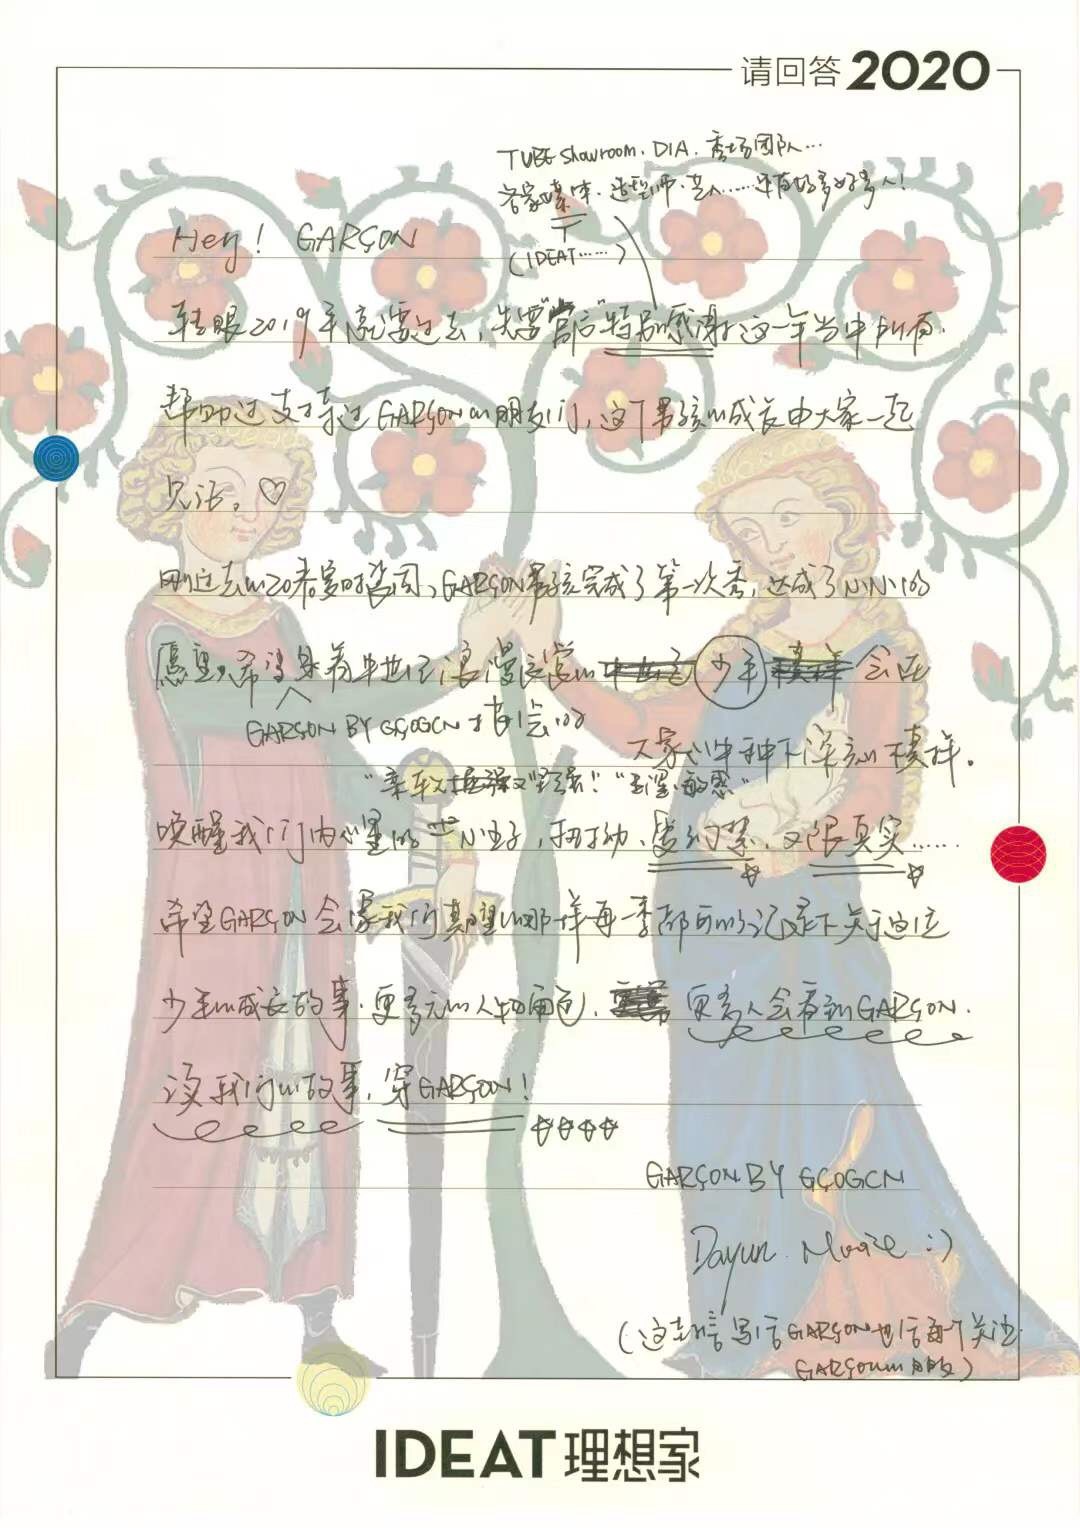 请回答2020
TUBE Showroom、DIA、秀场团队…
各家媒体、造型师、艺人……还有好多好多人!
(IDEAT……)
Hey! GARÇON
转眼2019年就要过去,先要"官方"特别感谢这一年当中所有
帮助过支持过GARÇON的朋友们,这个男孩的成长由大家一起
见证。♡
刚过去的20春夏时装周,GARÇON男孩完成了第一次秀,达成了小小的
愿望,希望身着中世纪浪漫 少年 会在
GARÇON BY GÇOGCN
大家心中种下深刻的模样。
唤醒我们内心里的 小王子, 又很真实……
希望GARÇON会像我们期望的那样每一季都可以记录下关于这位
少年的成长故事,更多元的人物角色, 更多人会看到GARÇON.
没我们的故事,穿GARÇON!
GARÇON BY GÇOGCN
Dayun :)
(这封信写给GARÇON也给每个关注
GARÇON的朋友)
IDEAT理想家